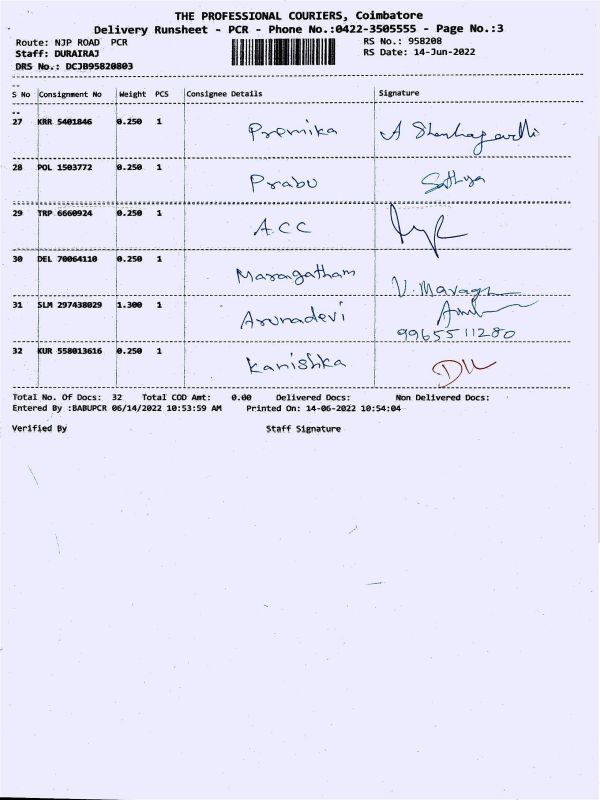 THE PROFESSIONAL COURIERS, Coimbatore
Delivery Runsheet - PCR - Phone No.:0422-3505555 - Page No.:3
Route: NJP ROAD PCR RS No.: 958208
Staff: DURAIRAJ RS Date: 14-Jun-2022
DRS No.: DCJB95820803
S No Consignment No Weight PCS Consignee Details Signature
27 KRR 5401846 0.250 1 Premika A Shanhagavalli
28 POL 1503772 0.250 1 Prabu Sathya
29 TRP 6660924 0.250 1 A.C.C
30 DEL 70064110 0.250 1 Maragatham V. Maraga
31 SLM 297438029 1.300 1 Arunadevi
9965511280
32 KUR 558013616 0.250 1 Kanishka
Total No. Of Docs: 32 Total COD Amt: 0.00 Delivered Docs: Non Delivered Docs:
Entered By :BABUPCR 06/14/2022 10:53:59 AM Printed On: 14-06-2022 10:54:04
Verified By Staff Signature